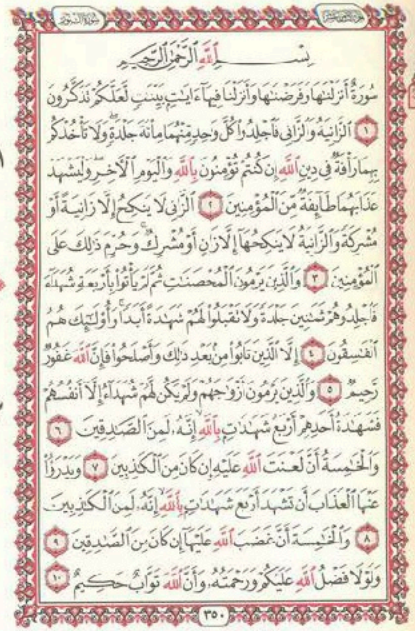 سُورَةُ النُّورِ
بِسْمِ ٱللَّهِ ٱلرَّحْمَٰنِ ٱلرَّحِيمِ
سُورَةٌ أَنزَلْنَٰهَا وَفَرَضْنَٰهَا وَأَنزَلْنَا فِيهَآ ءَايَٰتٍۭ بَيِّنَٰتٍ لَّعَلَّكُمْ تَذَكَّرُونَ
١ ٱلزَّانِيَةُ وَٱلزَّانِى فَٱجْلِدُوا۟ كُلَّ وَٰحِدٍ مِّنْهُمَا مِا۟ئَةَ جَلْدَةٍ وَلَا تَأْخُذْكُم
بِهِمَا رَأْفَةٌ فِى دِينِ ٱللَّهِ إِن كُنتُمْ تُؤْمِنُونَ بِٱللَّهِ وَٱلْيَوْمِ ٱلْءَاخِرِ وَلْيَشْهَدْ
عَذَابَهُمَا طَآئِفَةٌ مِّنَ ٱلْمُؤْمِنِينَ ٢ ٱلزَّانِى لَا يَنكِحُ إِلَّا زَانِيَةً أَوْ
مُشْرِكَةً وَٱلزَّانِيَةُ لَا يَنكِحُهَآ إِلَّا زَانٍ أَوْ مُشْرِكٌ وَحُرِّمَ ذَٰلِكَ عَلَى
ٱلْمُؤْمِنِينَ ٣ وَٱلَّذِينَ يَرْمُونَ ٱلْمُحْصَنَٰتِ ثُمَّ لَمْ يَأْتُوا۟ بِأَرْبَعَةِ شُهَدَآءَ
فَٱجْلِدُوهُمْ ثَمَٰنِينَ جَلْدَةً وَلَا تَقْبَلُوا۟ لَهُمْ شَهَٰدَةً أَبَدًا وَأُو۟لَٰٓئِكَ هُمُ
ٱلْفَٰسِقُونَ ٤ إِلَّا ٱلَّذِينَ تَابُوا۟ مِنۢ بَعْدِ ذَٰلِكَ وَأَصْلَحُوا۟ فَإِنَّ ٱللَّهَ غَفُورٌ
رَّحِيمٌ ٥ وَٱلَّذِينَ يَرْمُونَ أَزْوَٰجَهُمْ وَلَمْ يَكُن لَّهُمْ شُهَدَآءُ إِلَّآ أَنفُسُهُمْ
فَشَهَٰدَةُ أَحَدِهِمْ أَرْبَعُ شَهَٰدَٰتٍۭ بِٱللَّهِ إِنَّهُۥ لَمِنَ ٱلصَّٰدِقِينَ ٦
وَٱلْخَٰمِسَةُ أَنَّ لَعْنَتَ ٱللَّهِ عَلَيْهِ إِن كَانَ مِنَ ٱلْكَٰذِبِينَ ٧ وَيَدْرَؤُا۟
عَنْهَا ٱلْعَذَابَ أَن تَشْهَدَ أَرْبَعَ شَهَٰدَٰتٍۭ بِٱللَّهِ إِنَّهُۥ لَمِنَ ٱلْكَٰذِبِينَ
٨ وَٱلْخَٰمِسَةَ أَنَّ غَضَبَ ٱللَّهِ عَلَيْهَآ إِن كَانَ مِنَ ٱلصَّٰدِقِينَ ٩
وَلَوْلَا فَضْلُ ٱللَّهِ عَلَيْكُمْ وَرَحْمَتُهُۥ وَأَنَّ ٱللَّهَ تَوَّابٌ حَكِيمٌ ١٠
٣٥٠